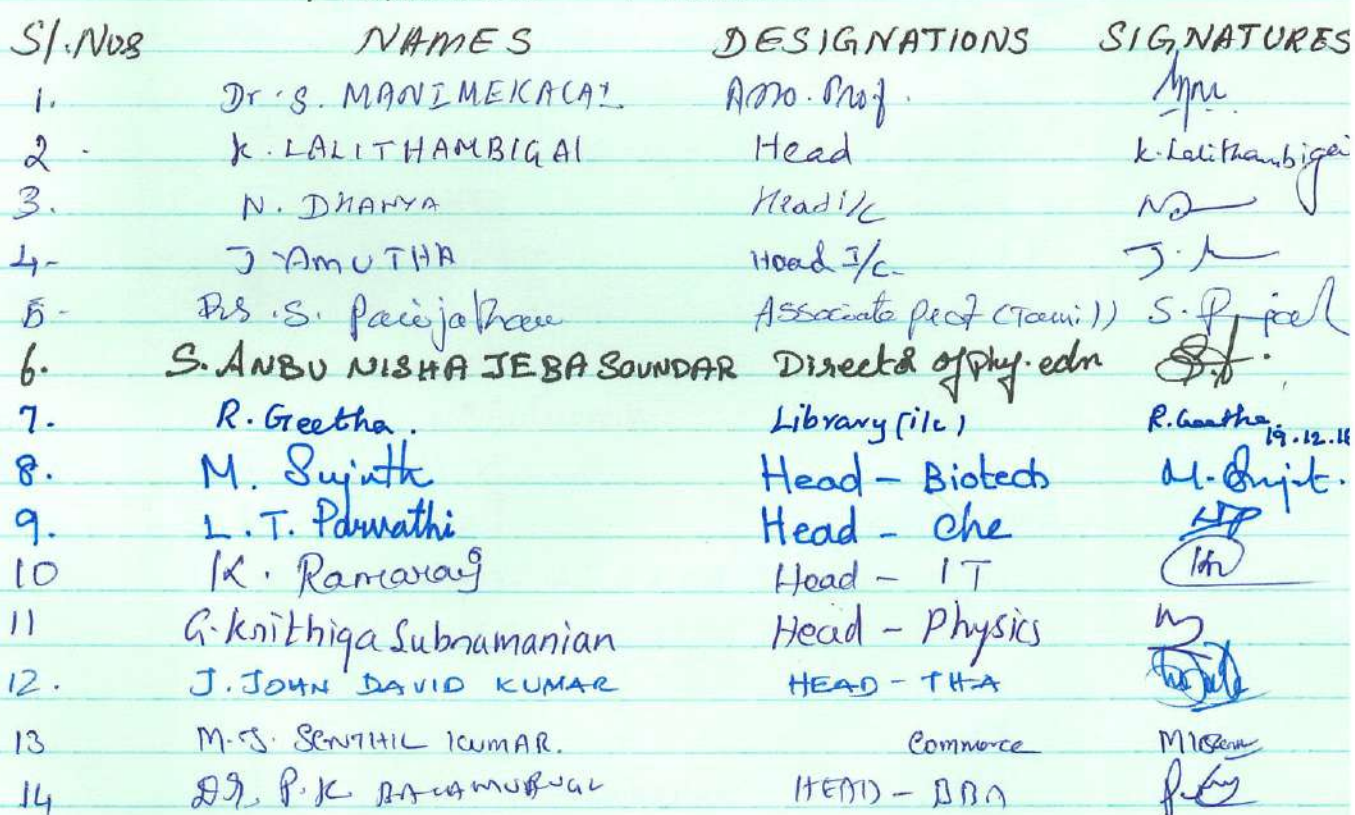 Sl.Nos NAMES DESIGNATIONS SIGNATURES
1. Dr. S. MANIMEKALAI Asso. Prof.
2. K. LALITHAMBIGAI Head K. Lalithambigai
3. N. DHANYA Head i/c
4- J. AMUTHA Head I/c-
5- S. Associate Prof (Tamil) S.
6. S. ANBU NISHA JEBA SOUNDAR Director of phy. edn
7. R. Geetha. Library (i/c) R. Geetha. 19.12.18
8. M. Sujith Head - Biotech M. Sujit.
9. L. T. Parvathi Head - Che
10 K. Ramaraj Head - IT
11 G. Krithiga Subramanian Head - Physics
12. J. JOHN DAVID KUMAR HEAD - THA
13 M.S. SENTHIL KUMAR. Commerce
14 Dr. P. K. BALAMURUGAN HEAD - BBA